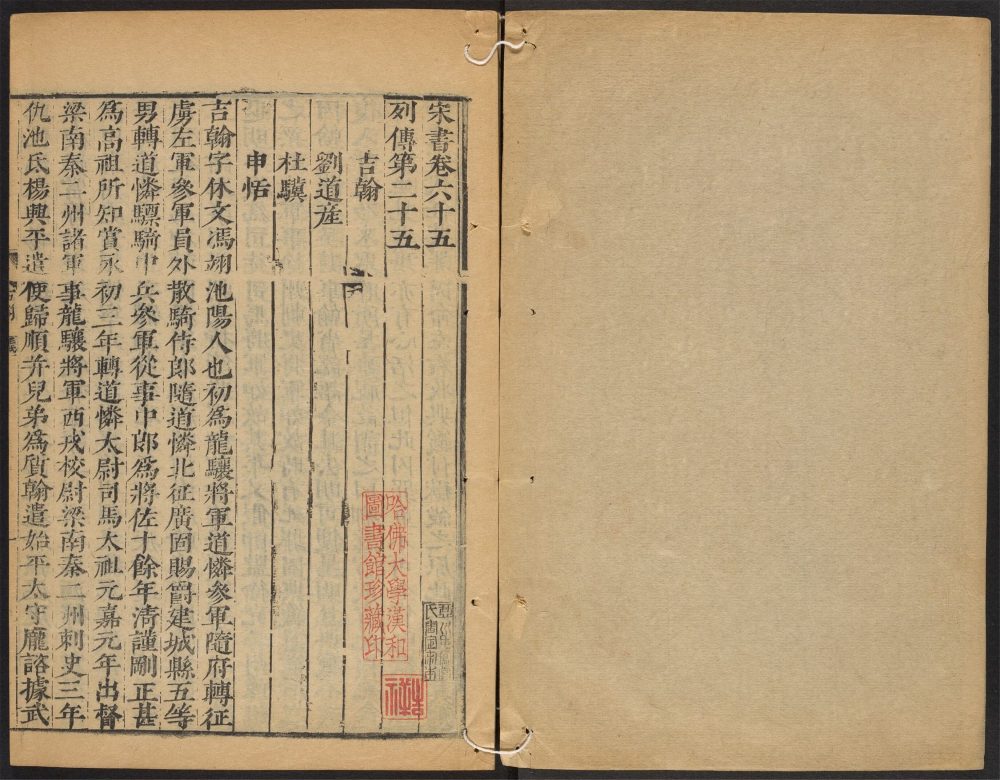 宋書卷六十五
列傳第二十五
吉翰
劉道産
杜驥
申恬
吉翰字休文馮翊池陽人也初爲龍驤將軍道憐參軍隨府轉征
虜左軍參軍員外散騎侍郎隨道憐北征廣固賜爵建城縣五等
男轉道憐驃騎中兵參軍從事中郎爲將佐十餘年清謹剛正甚
爲高祖所知賞永初三年轉道憐太尉司馬太祖元嘉元年出督
梁南秦二州諸軍事龍驤將軍西戎校尉梁南秦二州刺史三年
仇池氐楊興平遣使歸順并兒弟爲質翰遣始平太守龐諮據武
哈佛大學漢和
圖書館珍藏印